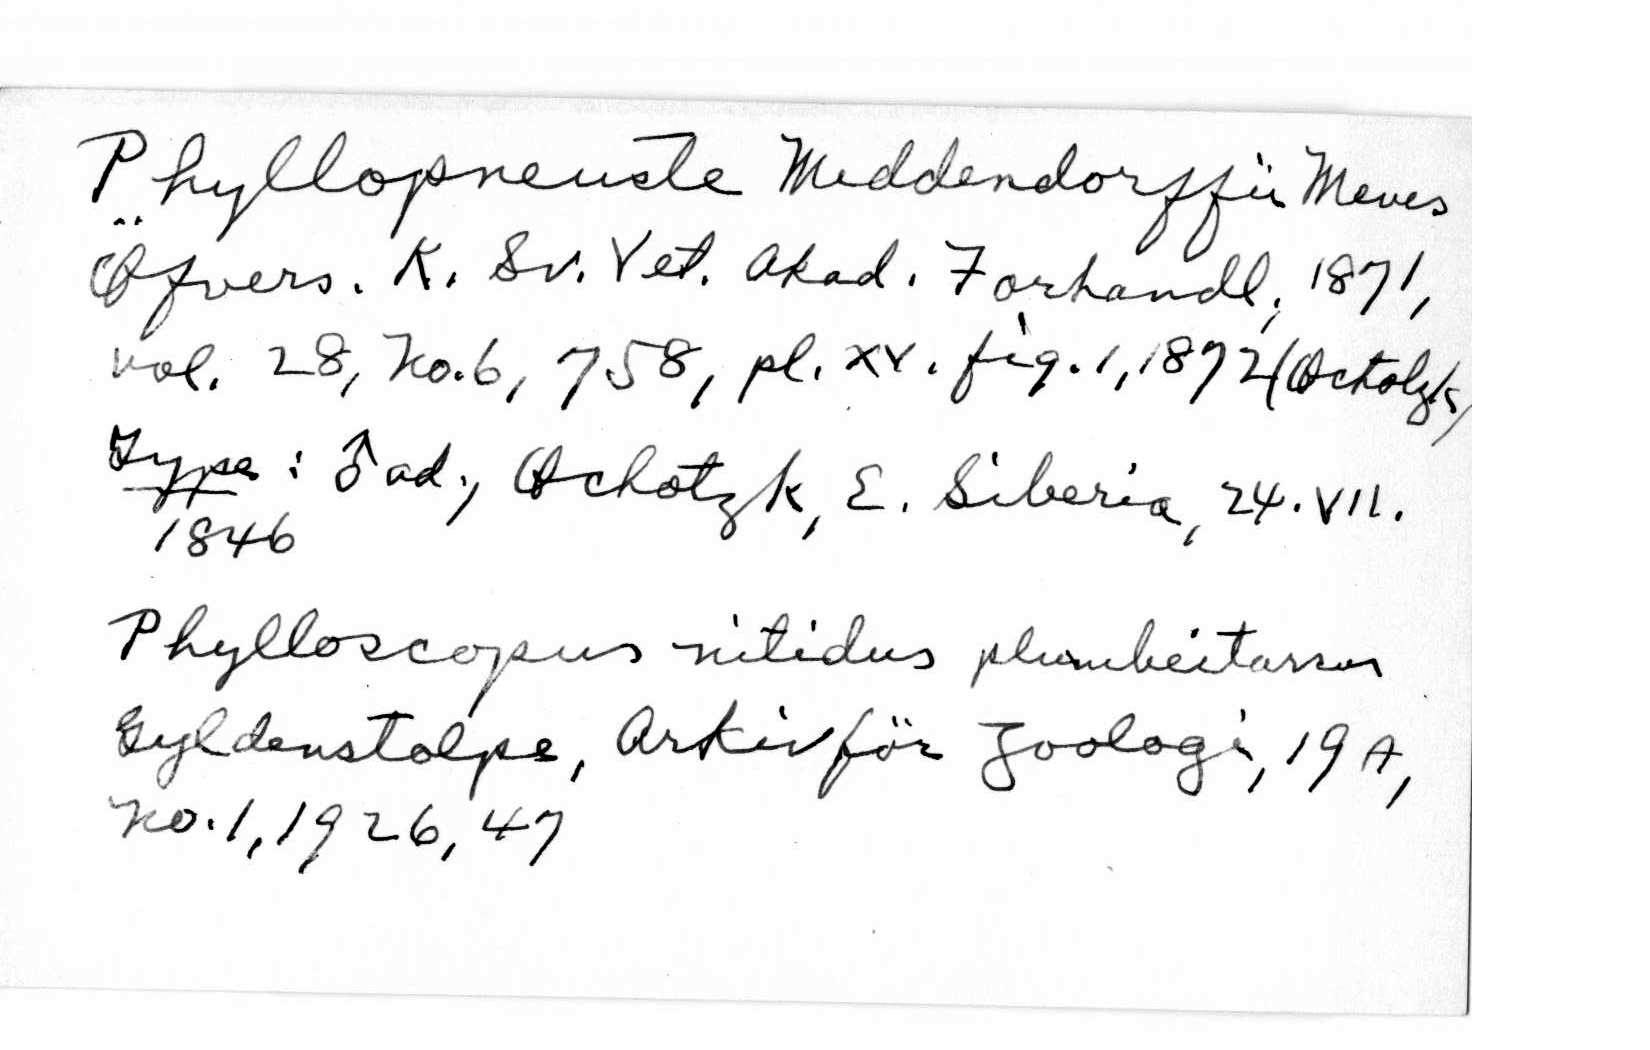 Phyllopneuste Meddendorffii Meves
Öfvers. K. Sv. Vet. Akad. Forhandl, 1871,
vol. 28, No. 6, 758, pl. XV. fig. 1, 1872 (Ochotzk)
Type: ♂ ad., Ochotzk, E. Siberia, 24. VII.
1846
Phylloscopus nitidus plumbeitarsus
Gyldenstolpe, Arkiv för Zoologi, 19 A,
No. 1, 1926, 47